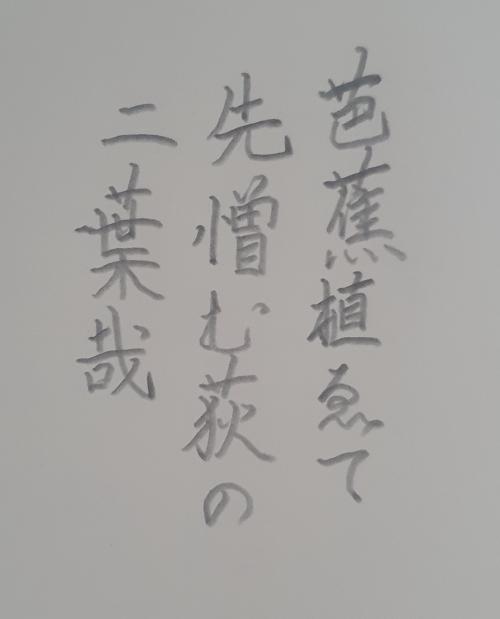 芭蕉植ゑて
先憎む荻の
二葉哉